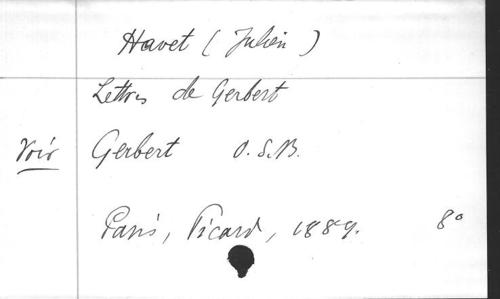 Havet (Julien)
Lettres de Gerbert
Voir Gerbert O.S.B.
Paris, Picard, 1889. 8°